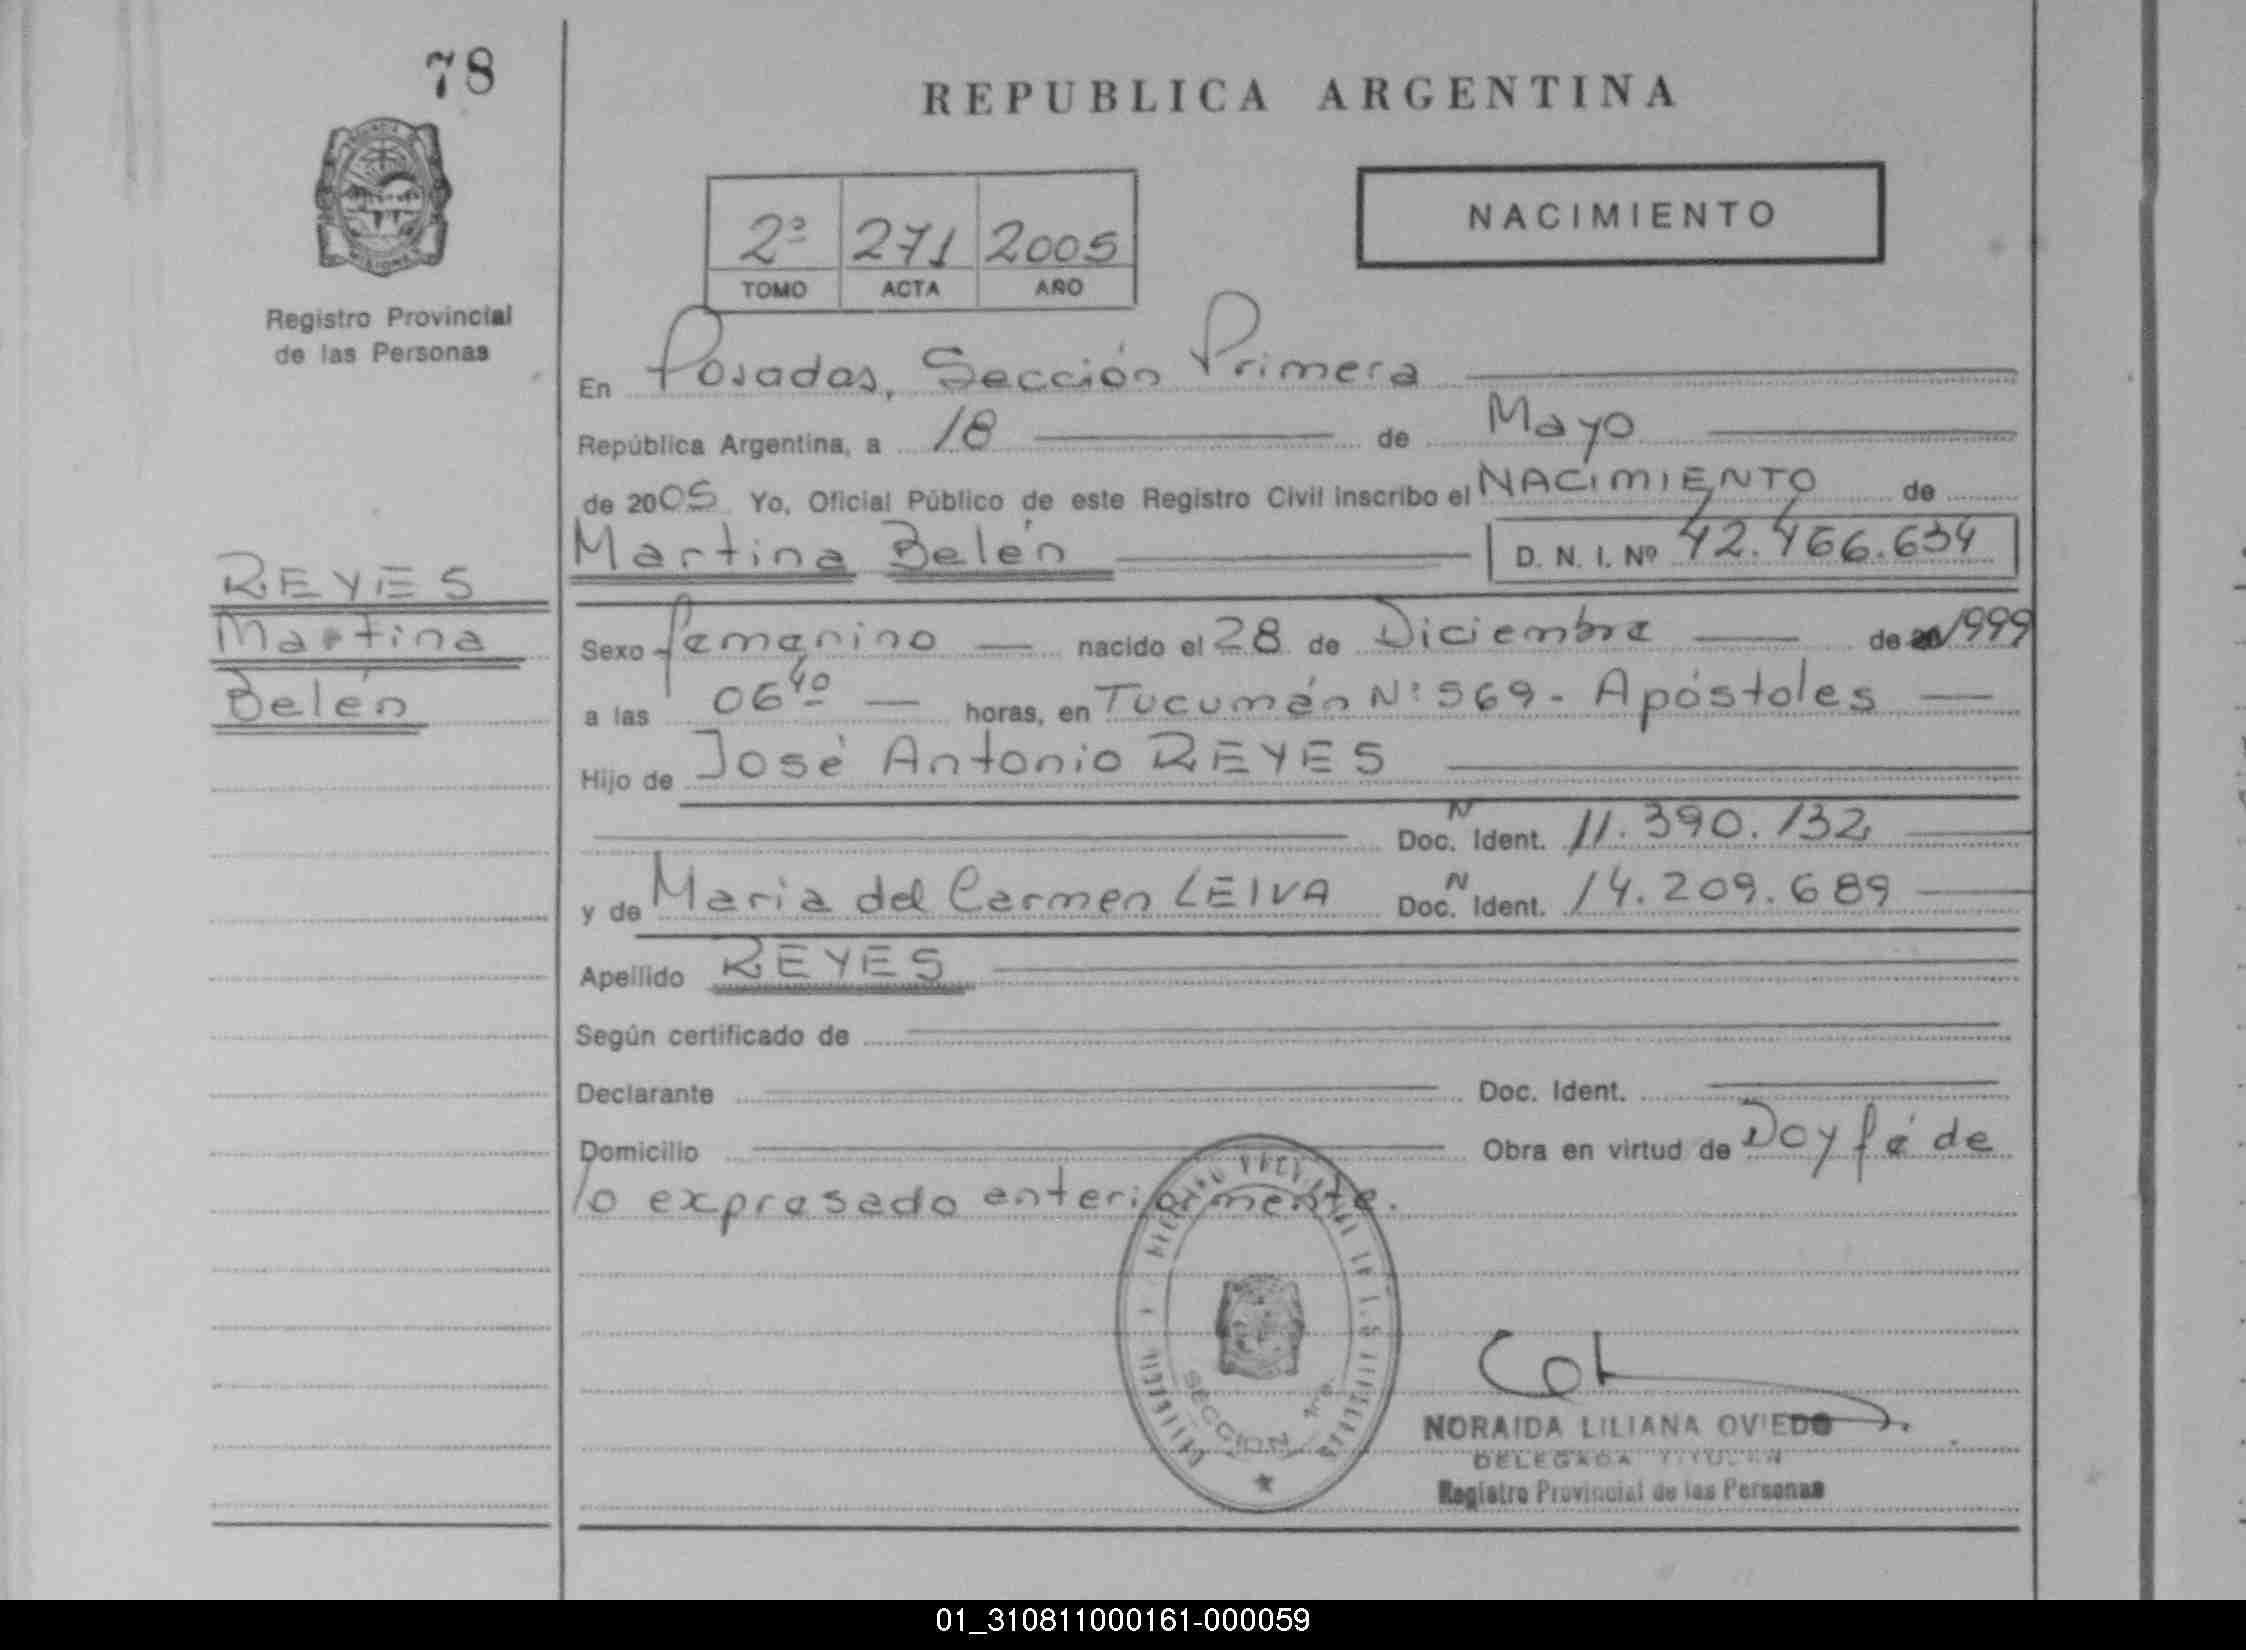 78
REPUBLICA ARGENTINA
NACIMIENTO
2º 271 2005
TOMO ACTA AÑO
Registro Provincial
de las Personas
En Posadas, Sección Primera
República Argentina, a 18 de Mayo
de 2005 Yo, Oficial Público de este Registro Civil inscribo el NACIMIENTO de
Martina Belén D. N. I. Nº 42.466.634
REYES
Martina
Belén
Sexo femenino nacido el 28 de Diciembre de 1999
a las 06 40 horas, en Tucumán Nº 569 - Apóstoles
Hijo de José Antonio REYES
Doc. N Ident. 11.390.132
y de Maria del Carmen LEIVA Doc. N Ident. 14.209.689
Apellido REYES
Según certificado de
Declarante Doc. Ident.
Domicilio Obra en virtud de Doy fé de
lo expresado anteriormente.
SECCION 1ra.
NORAIDA LILIANA OVIEDO
DELEGADA TITULAR
Registro Provincial de las Personas
01_310811000161-000059